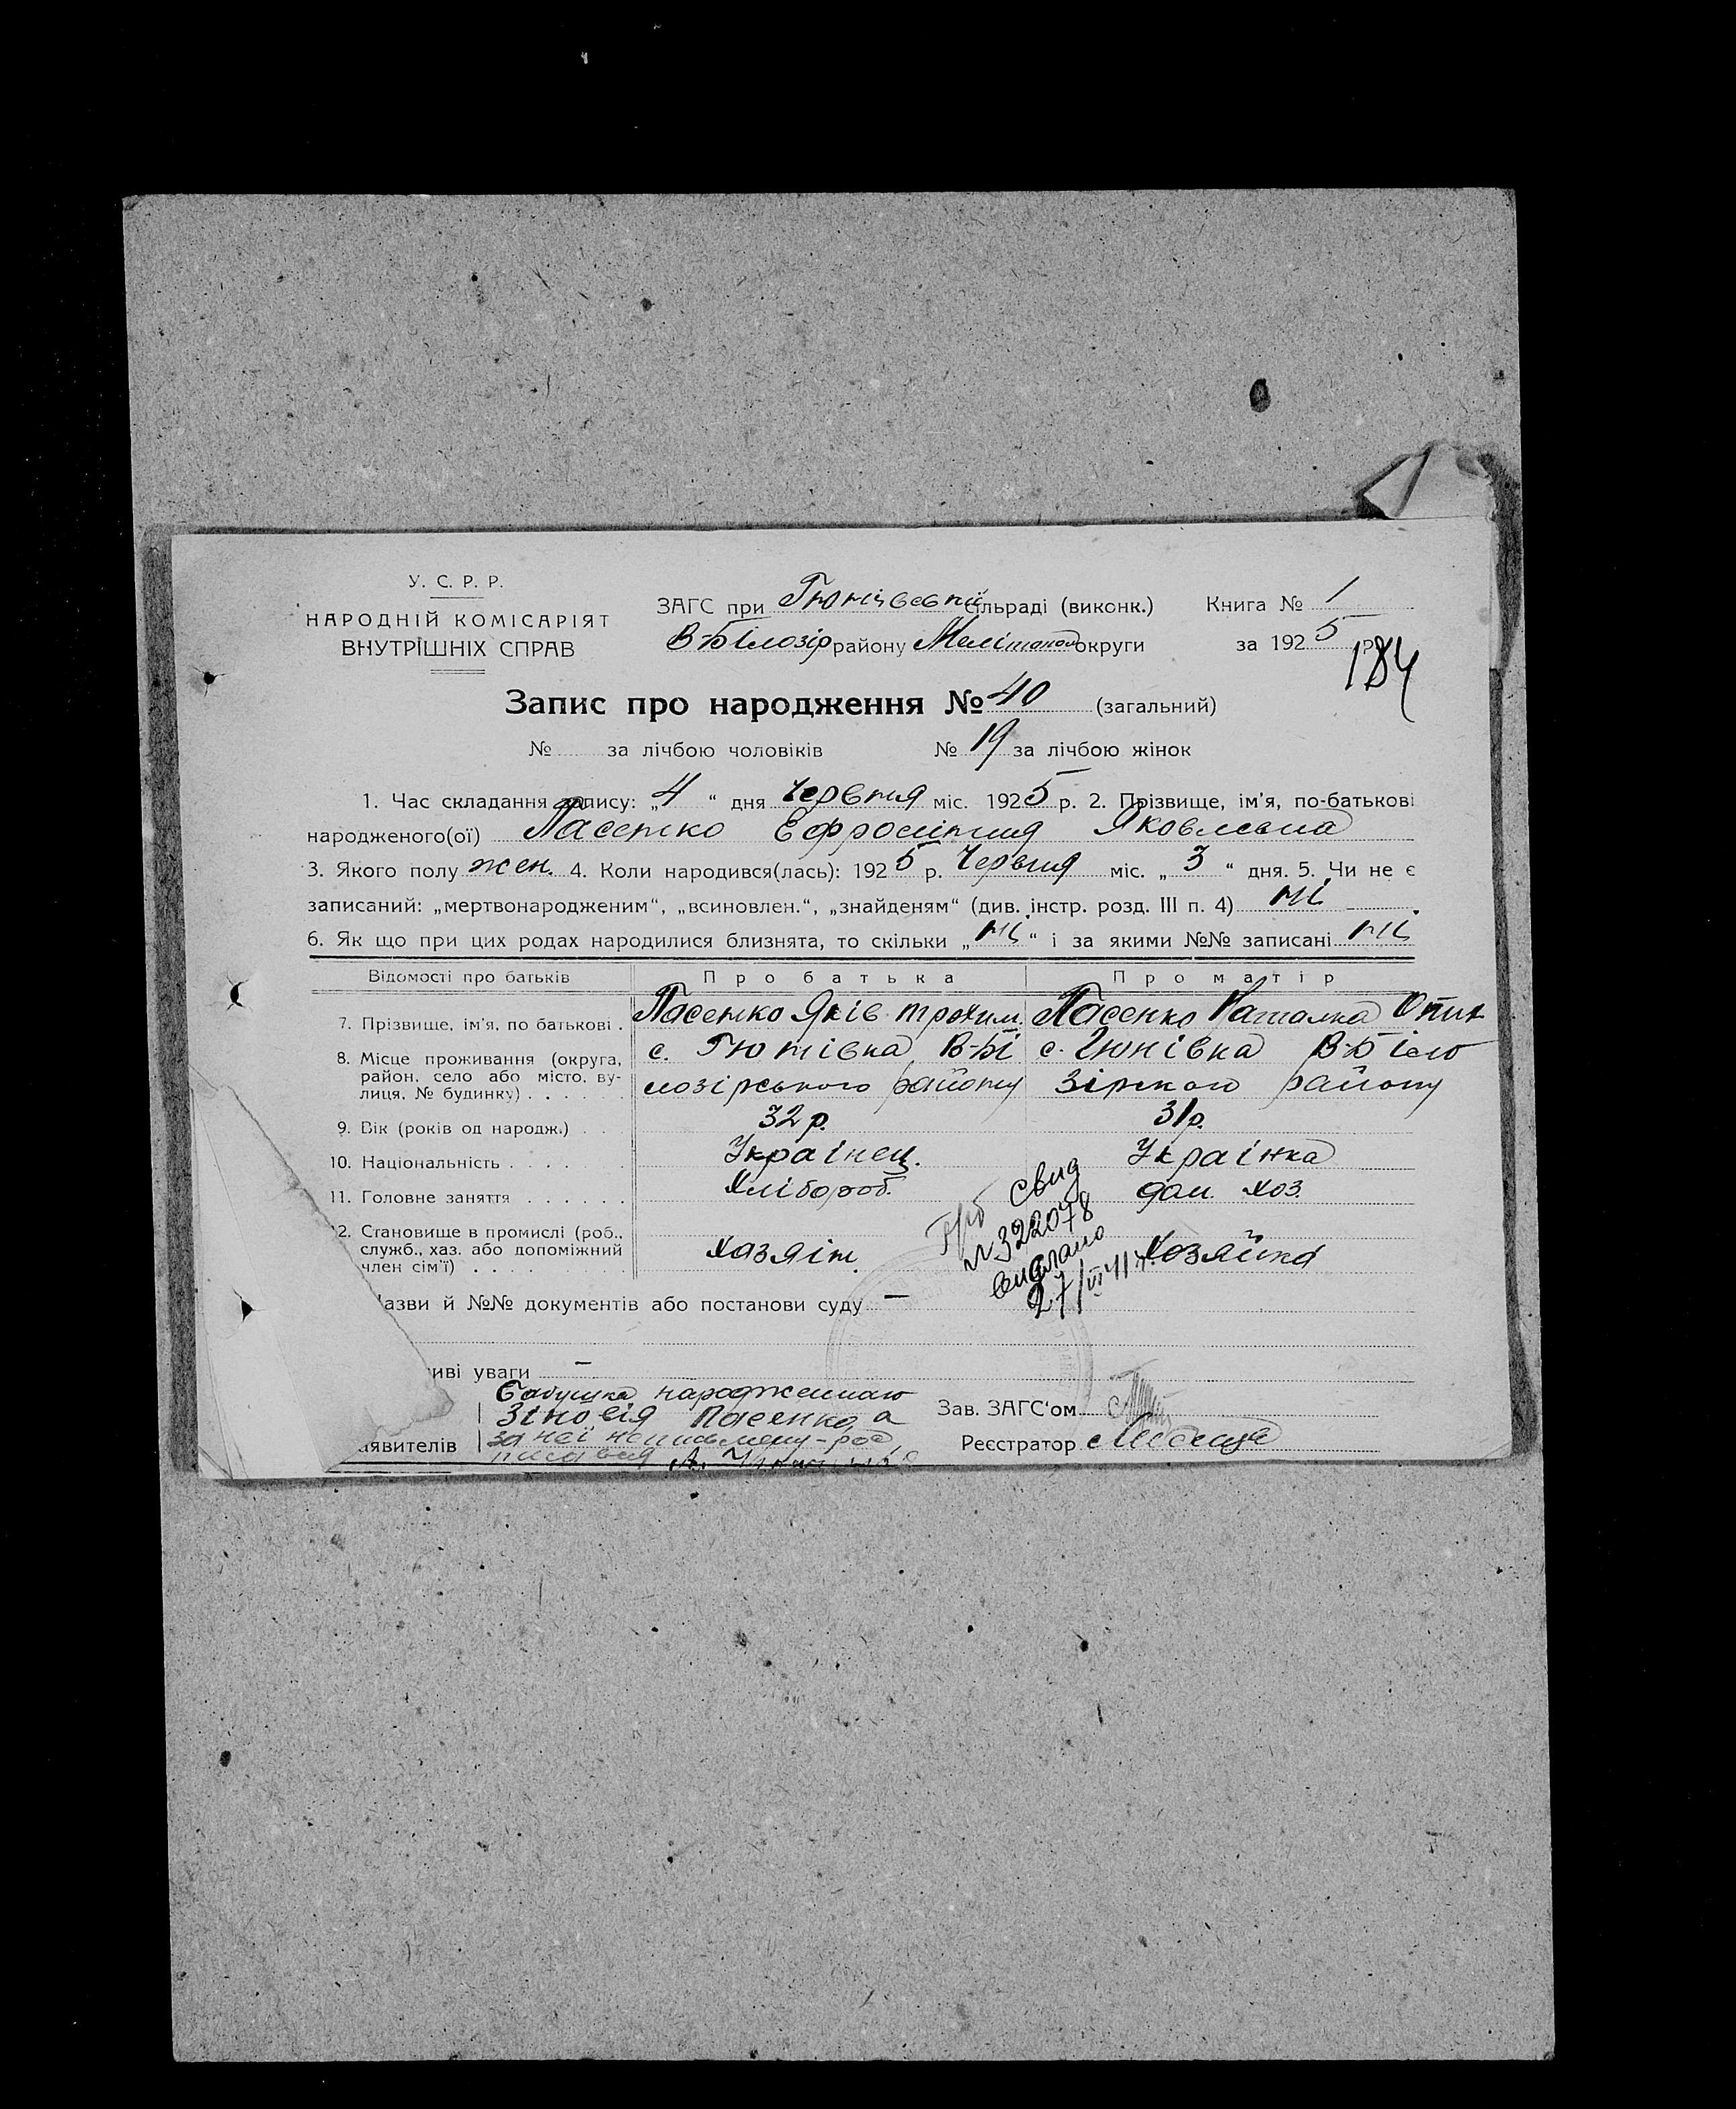 У. С. Р. Р.
НАРОДНІЙ КОМІСАРІЯТ
ВНУТРІШНІХ СПРАВ
ЗАГС при Гюнівській сільраді (виконк.) Книга № 1
В-Білозір району Меліт округи за 1925 р.
184
Запис про народження № 40 (загальний)
№ за лічбою чоловіків № 19 за лічбою жінок
1. Час складання запису: „4“ дня Червня міс. 1925 р. 2. Прізвище, ім'я, по-батькові
народженого(ої) Пасенко Ефросінія Яковлевна
3. Якого полу жен. 4. Коли народився(лась): 1925 р. Червня міс. „3“ дня. 5. Чи не є
записаний: „мертвонародженим“, „всиновлен.“, „знайденям“ (див. інстр. розд. III п. 4) ні
6. Як що при цих родах народилися близнята, то скільки „ні“ і за якими №№ записані ні
Відомості про батьків Про батька Про матір
7. Прізвище, ім'я, по батькові . Пасенко Яків Трохим. Пасенко Наталка Опик
8. Місце проживання (округа, с. Гюнівка, В-Бі с. Гюнівка В-Біло
район, село або місто, ву- лозірського району зірского району
лиця, № будинку) . . . . . .
9. Вік (років од народж.) . . 32 р. 31 р.
10. Національність . . . . . Українец. Українка
11. Головне заняття . . . . . . Хлібороб. дом. хоз.
12. Становище в промислі (роб.,
служб., хаз. або допоміжний Хазяін. Хозяйка
член сім'ї) . . . . . . . .
свид
№ 322078
видано
27/VI 41 г.
Назви й №№ документів або постанови суду —
иві уваги —
Бабушка народженною
Зіновія Пасенко, а Зав. ЗАГС'ом
аявителів за неї неписьмену-роз
писався А. Реєстратор